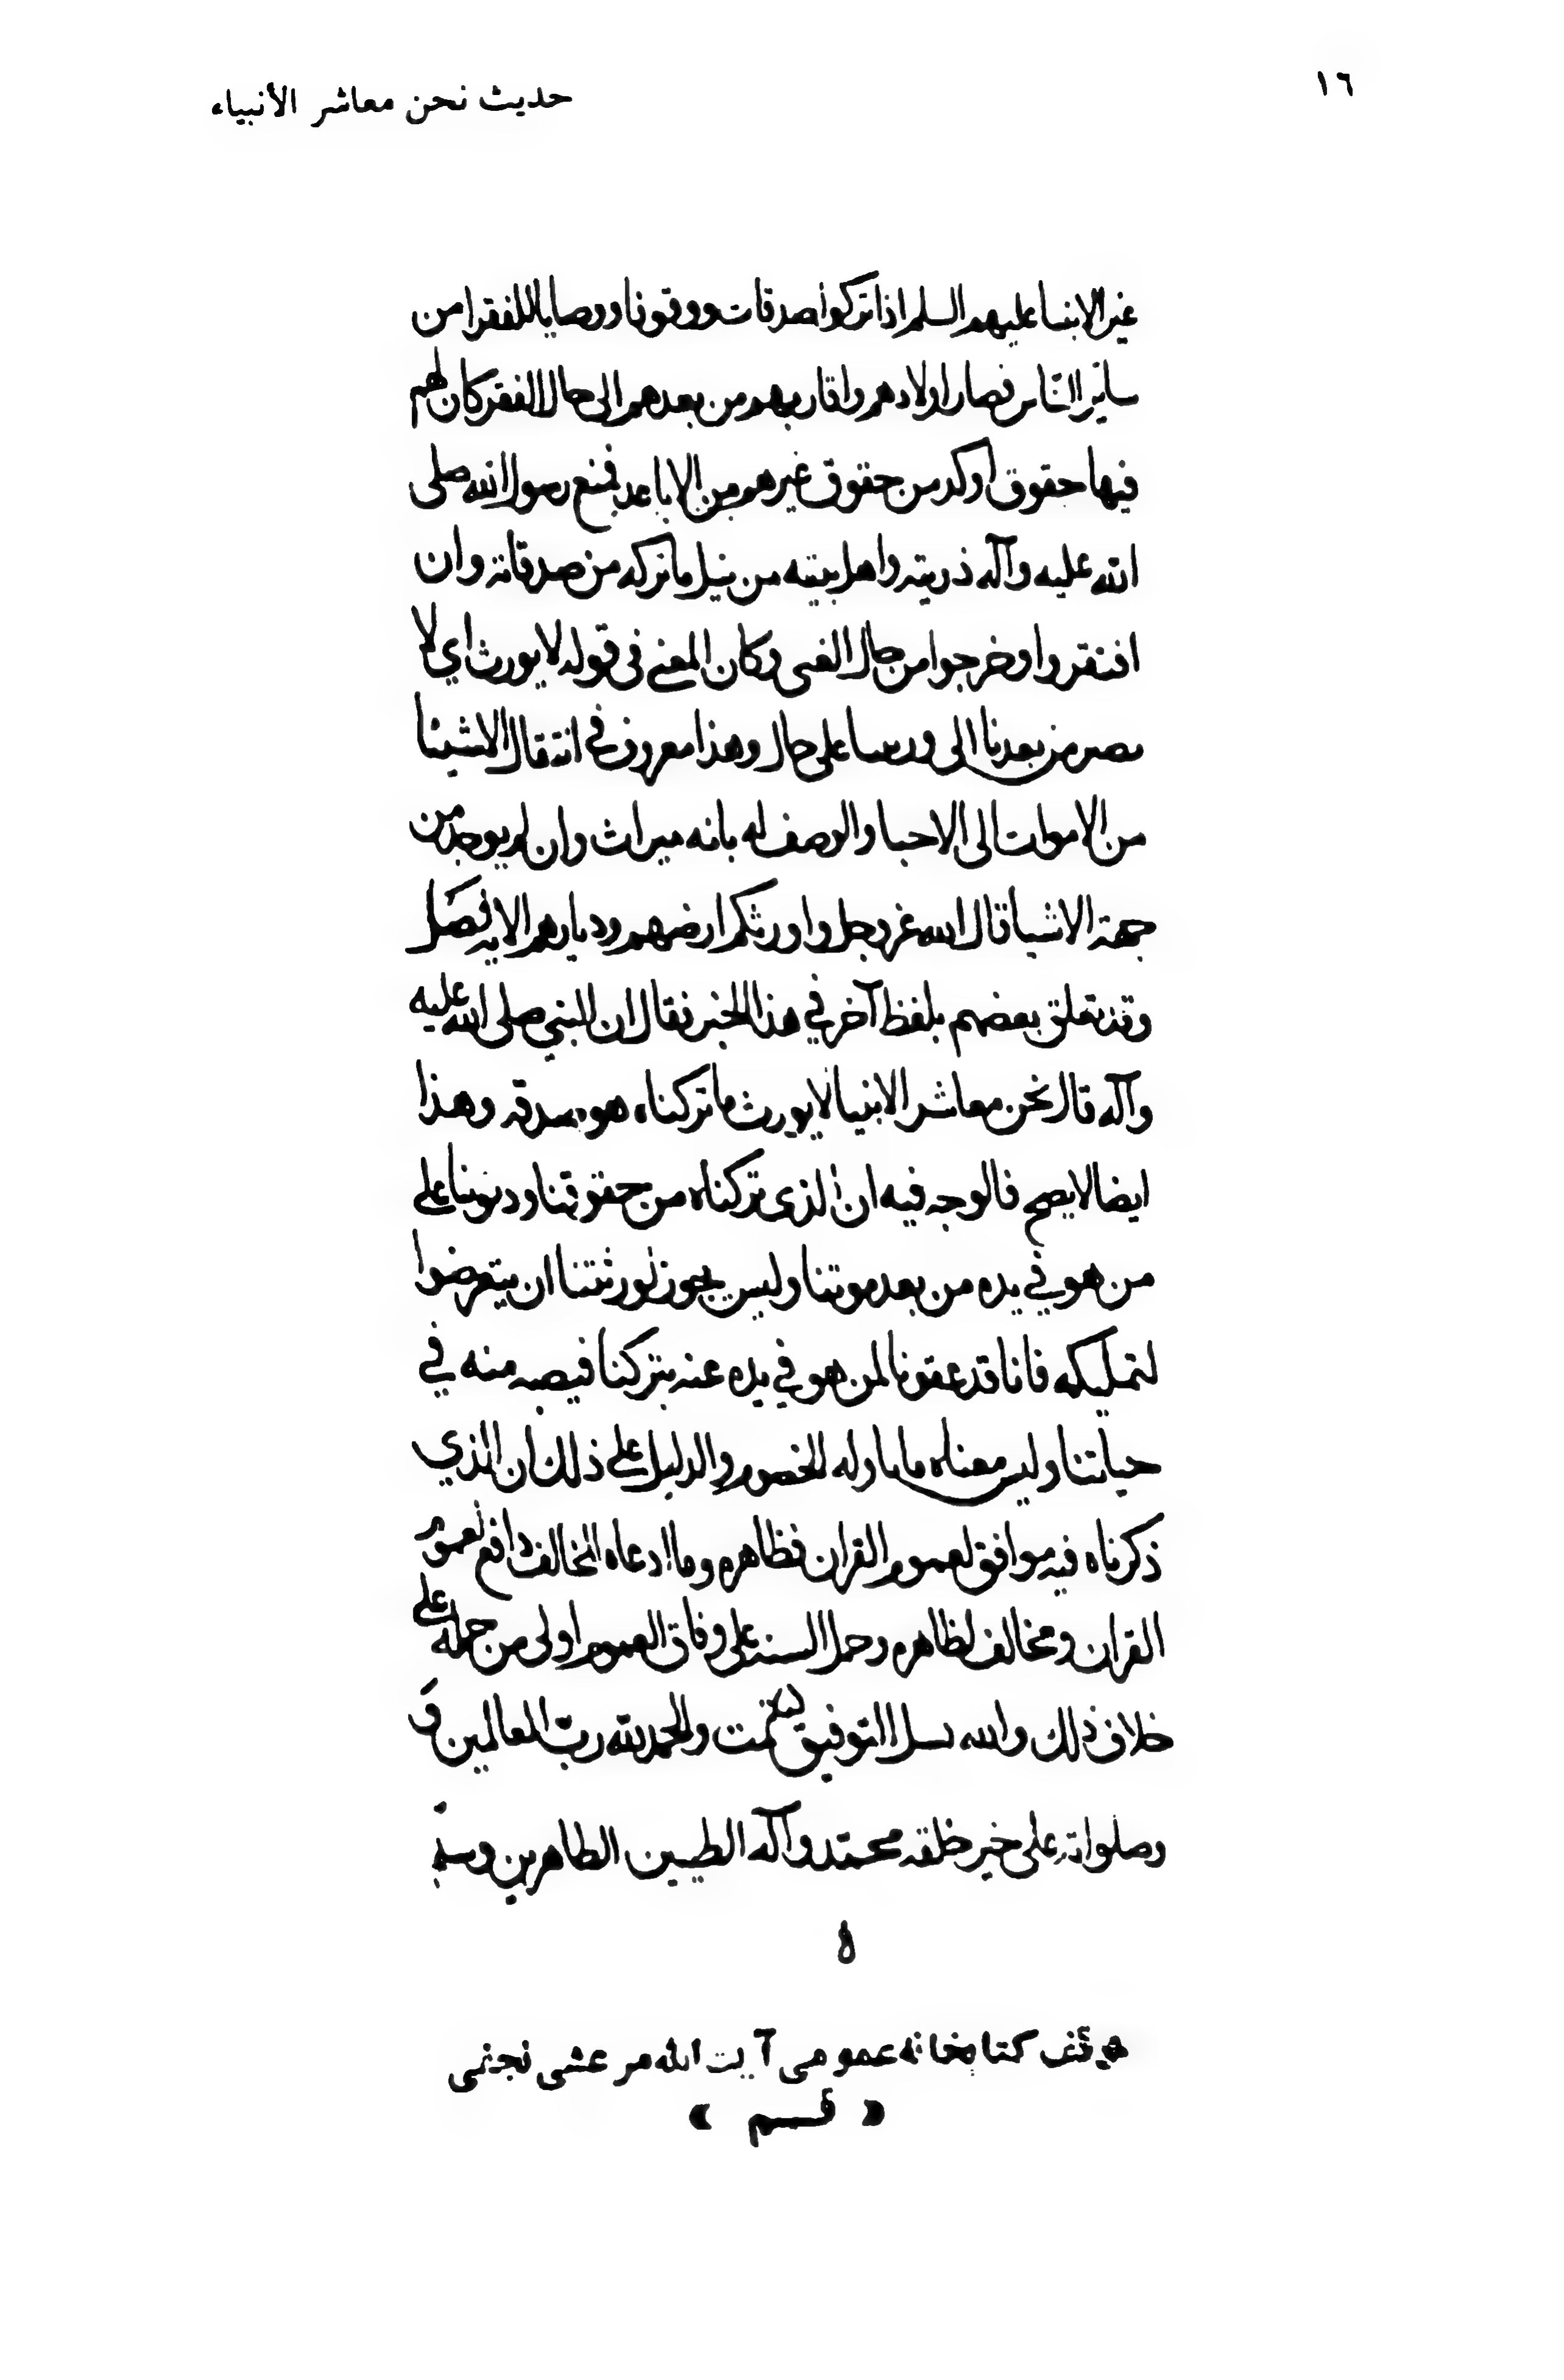 ١٦
حديث نحن معاشر الأنبياء
غير الانبيا عليهم السلم اذا تركوا صدقات ووقوفا ووصايا للفقرا من
سائر الناس فصار اولادهم واقاربهم من بعدهم الى حال الفقر كان لهم
فيها حقوق اوكد من حقوق غيرهم من الاباعد فمنع رسول الله صلى
الله عليه وآله ذريته واهل بيته من نيل ما تركه من صدقاته وان
افتقروا وخرجوا من حال الغنى وكان المعنى في قوله لا يورث اي لا
يصير من بعدنا الى ورثتنا على حال وهذا معروف في انتقال الاشيئا
من الاموات الى الاحيا والوصف له بانه ميراث وان لم يوجد من
جهة الاشيا قال الله عز وجل واورثكم ارضهم وديارهم الايه فصل
وقد تعلق بعضهم بلفظ آخر في هذا الخبر فقال ان النبي صلى الله عليه
وآله قال نحن معاشر الانبيا لا يورث ما تركناه هو صدقه وهذا
ايضا لا يصح فالوجه فيه ان الذى تركناه من حقوقنا وديوننا على
من هو في يده من بعد موتنا وليس يجوز لورثتنا ان يتعرضوا
لتمليكه فانا قد عفونا لمن هو في يده عنه بتركنا قبضه منه في
حياتنا وليس معناه ما تاوله الخصوم والدليل على ذلك ان الذي
ذكرناه فيه موافق لعموم القران فظاهره وما ادعاه المخالف دافع لعموم
القران ومخالف لظاهره وحمل السنه على وفاق العموم اولى من حمله على
خلاف ذلك والله نسل التوفيق تمت والحمد لله رب العالمين
وصلواته على خير خلقه محمد وآله الطيبين الطاهرين وسلم
ه
وقف كتابخانه عمومى آيت الله مرعشى نجفى
« قم »